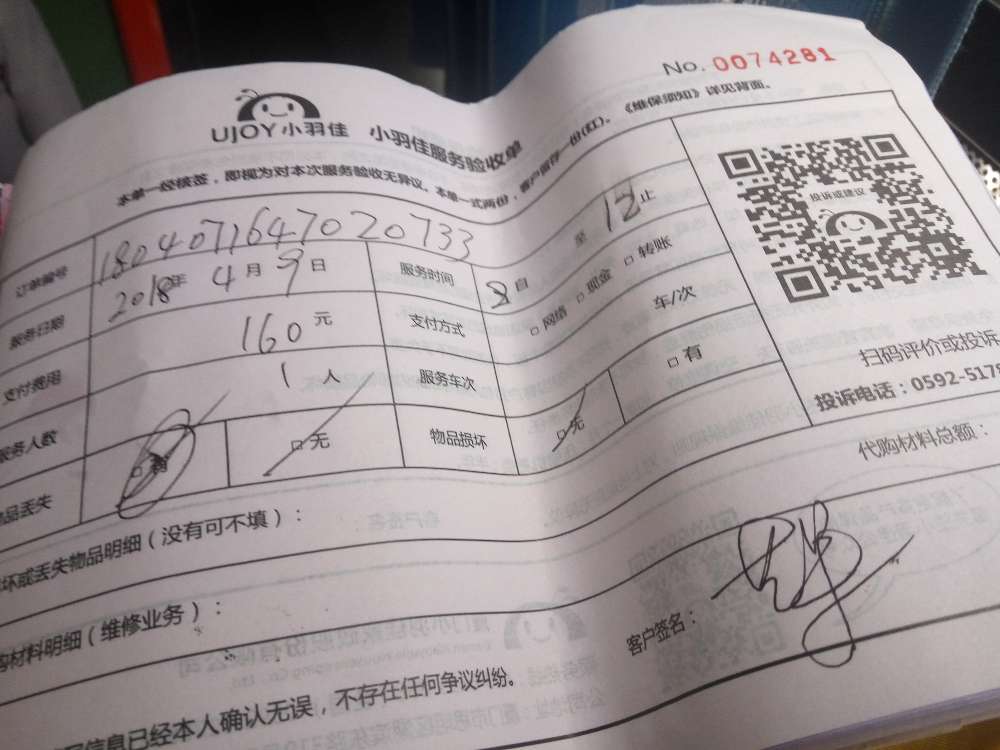 No. 0074281
UJOY小羽佳 小羽佳服务验收单
本单一经核签，即视为对本次服务验收无异议。本单一式两份，客户留存一份(红)。《维保须知》详见背面。
订单编号 1804071647020733
服务日期 2018年 4月 9日 服务时间 8自 至 12止
支付费用 160元 支付方式 □网络 □现金 □转账
服务人数 1人 服务车次 车/次
物品丢失 □有 □无 物品损坏 □无 □有
投诉或建议
扫码评价或投诉
投诉电话：0592-5178
坏或丢失物品明细（没有可不填）：
代购材料总额：
购材料明细（维修业务）：
客户签名：
信息已经本人确认无误，不存在任何争议纠纷。